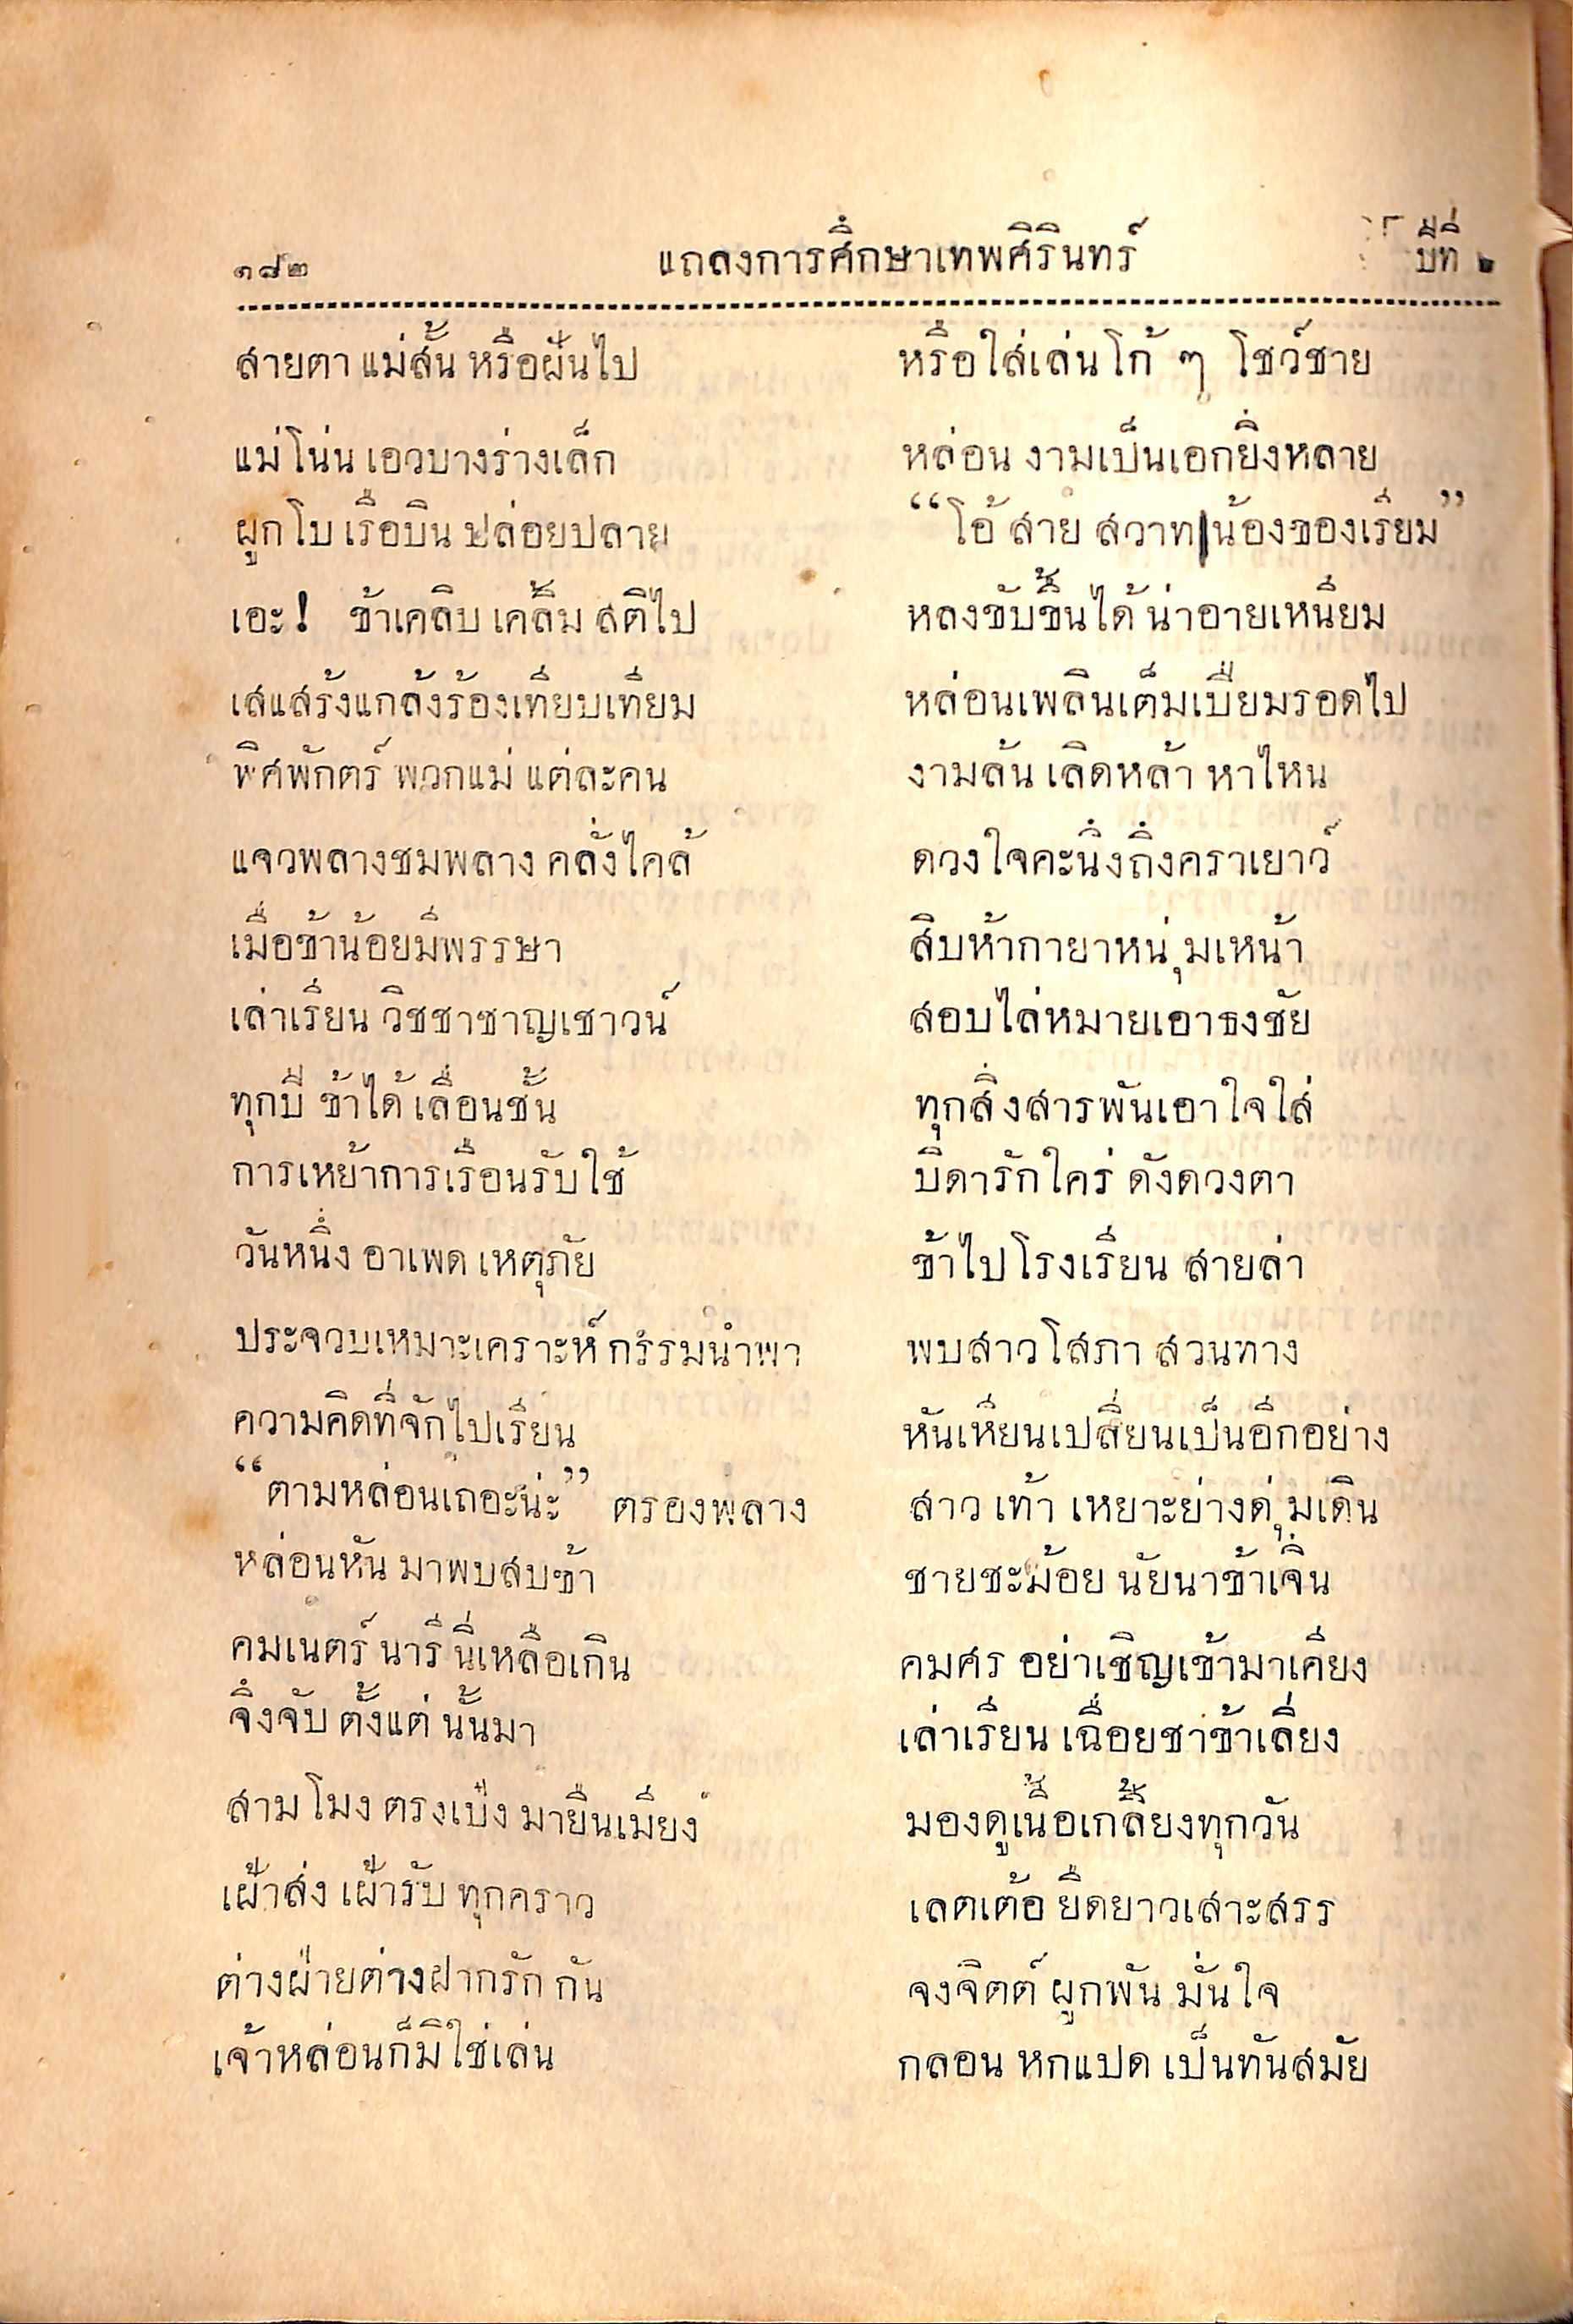 ๑๘๒ แถลงการศึกษาเทพศิรินทร์ ปีที่ ๒
สายตา แม่สั้น หรือฝันไป หรือใส่เล่นโก้ ๆ โชว์ชาย
แม่โน่น เอวบางร่างเล็ก หล่อน งามเป็นเอกยิ่งหลาย
ผูกโบ เรือบิน ปล่อยปลาย “โอ้ สาย สวาทน้องของเรียม”
เอะ! ข้าเคลิบ เคลิ้ม สติไป หลงขับขึ้นได้ น่าอายเหนียม
เสแสร้งแกล้งร้องเทียบเทียม หล่อนเพลินเต็มเบี่ยมรอดไป
พิศพักตร์ พวกแม่ แต่ละคน งามล้น เลิดหล้า หาไหน
แจวพลางชมพลาง คลั่งไคล้ ดวงใจคะนึงถึงคราเยาว์
เมื่อข้าน้อยมีพรรษา สิบห้ากายาหนุ่มเหน้า
เล่าเรียน วิชชาชาญเชาวน์ สอบไล่หมายเอาธงชัย
ทุกปี ข้าได้ เลื่อนชั้น ทุกสิ่งสารพันเอาใจใส่
การเหย้าการเรือนรับใช้ บิดารักใคร่ ดังดวงตา
วันหนึ่ง อาเพด เหตุภัย ข้าไปโรงเรียน สายล่า
ประจวบเหมาะเคราะห์ กรรมนำพา พบสาวโสภา สวนทาง
ความคิดที่จักไปเรียน หันเหียนเปลี่ยนเป็นอีกอย่าง
“ตามหล่อนเถอะน่ะ” ตรองพลาง สาว เท้า เหยาะย่างดุ่มเดิน
หล่อนหัน มาพบสบข้า ชายชะม้อย นัยนาข้าเจิ่น
คมเนตร์ นารี นี่เหลือเกิน คมศร อย่าเชิญเข้ามาเคียง
จึงจับ ตั้งแต่ นั้นมา เล่าเรียน เฉื่อยชาข้าเลี่ยง
สามโมง ตรงเป๋ง มายืนเมียง มองดูเนื้อเกลี้ยงทุกวัน
เฝ้าส่ง เฝ้ารับ ทุกคราว เลตเต้อ ยืดยาวเสาะสรร
ต่างฝ่ายต่างฝากรัก กัน จงจิตต์ ผูกพัน มั่นใจ
เจ้าหล่อนก็มิใช่เล่น กลอน หกแปด เป็นทันสมัย